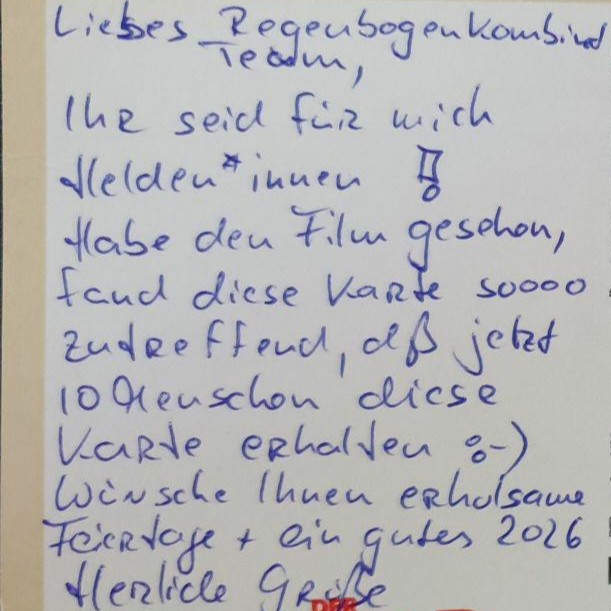 Liebes Regenbogenkombind
Team,
Ihr seid für mich
Helden*innen !
Habe den Film gesehen,
fand diese Karte soooo
zutreffend, dß jetzt
10 Menschen diese
Karte erhalten :-)
Wünsche Ihnen erholsame
Feiertage + ein gutes 2026
Herzliche Grüße